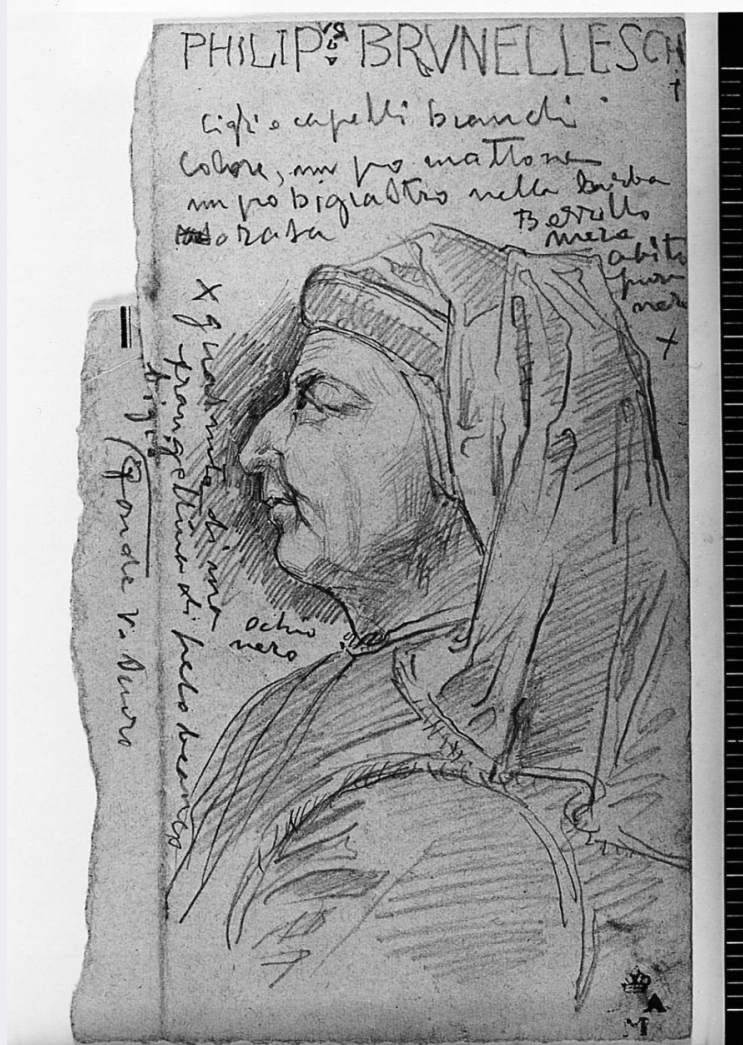 PHILIPVS BRVNELLESCH
cigli e capelli bianchi
colore, un po mattone
un po bigiastro nella barba
rasa
Berretto
nero
abito
pur
nero
X
X guarnito di una
frangettina di pelo bianco
bigio
fonde
occhio
nero
A
M